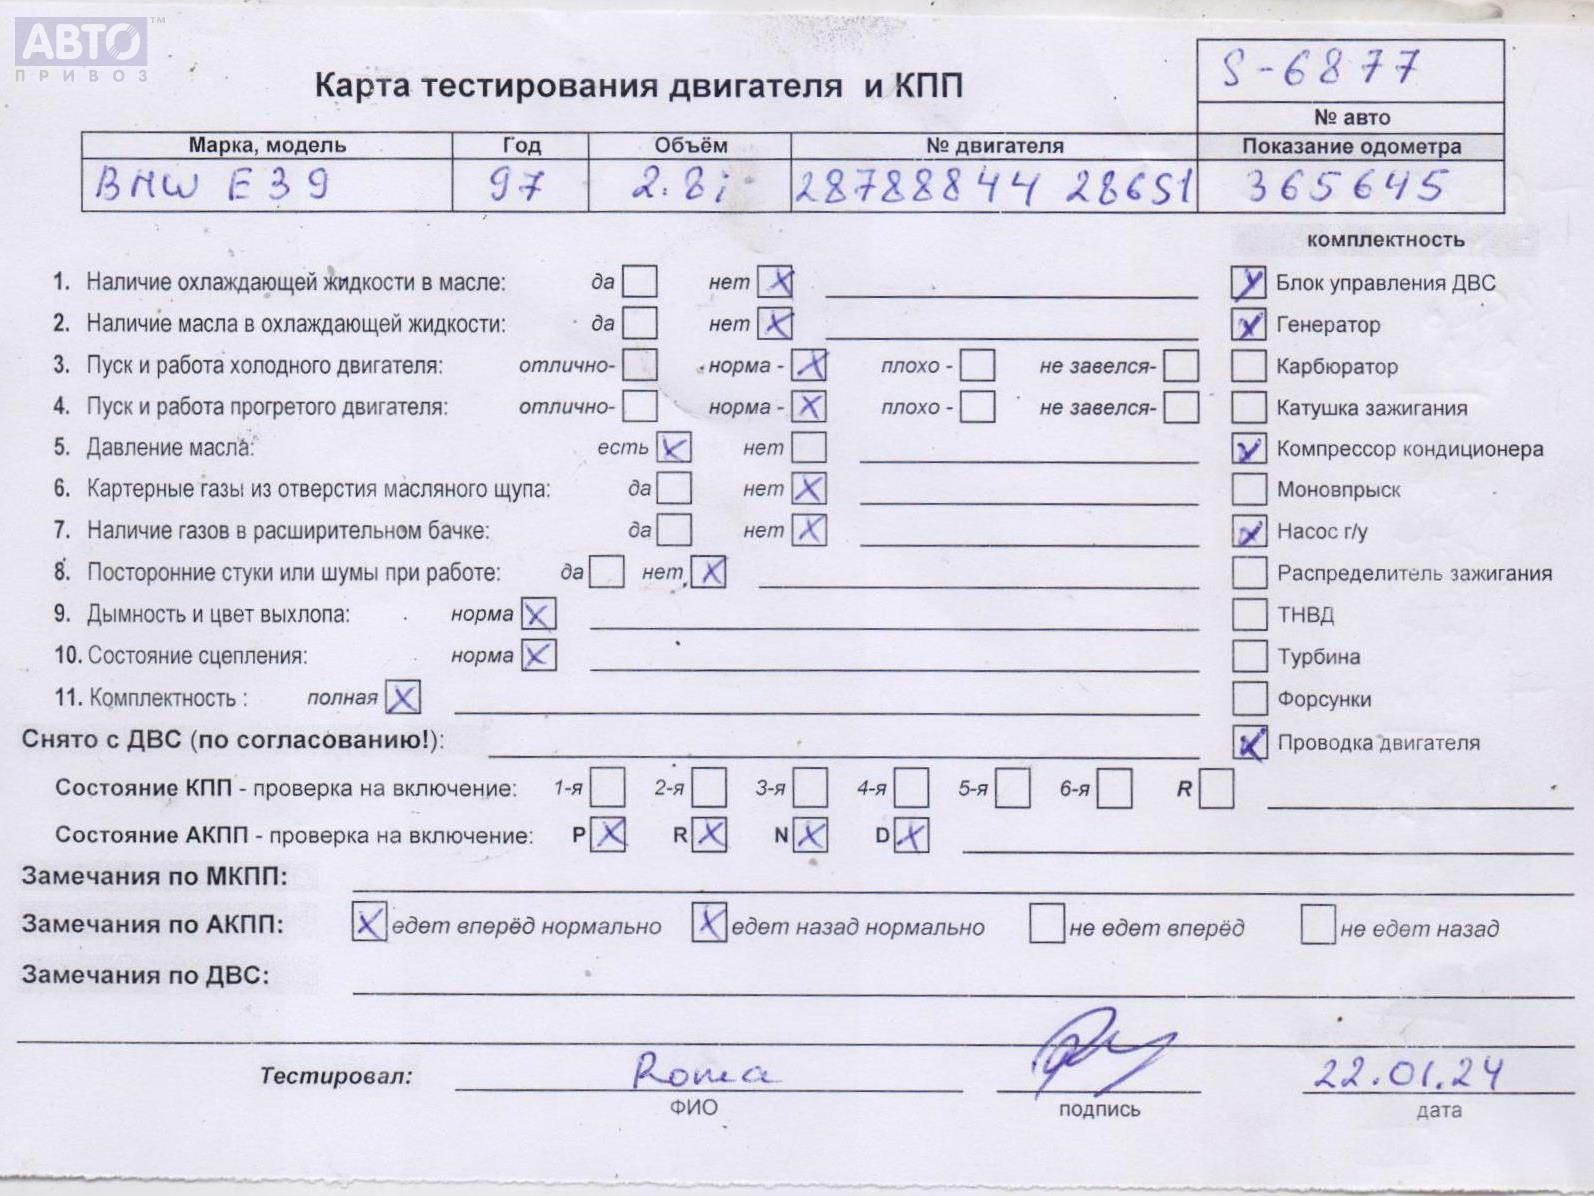 АВТО™
ПРИВОЗ
S-6877
Карта тестирования двигателя и КПП
№ авто
Марка, модель Год Объём № двигателя Показание одометра
BMW E39 97 2.8i 28788844 286S1 365645
комплектность
1. Наличие охлаждающей жидкости в масле: да нет X Блок управления ДВС
2. Наличие масла в охлаждающей жидкости: да нет X Генератор
3. Пуск и работа холодного двигателя: отлично- норма - X плохо - не завелся- Карбюратор
4. Пуск и работа прогретого двигателя: отлично- норма - X плохо - не завелся- Катушка зажигания
5. Давление масла: есть X нет Компрессор кондиционера
6. Картерные газы из отверстия масляного щупа: да нет X Моновпрыск
7. Наличие газов в расширительном бачке: да нет X Насос г/у
8. Посторонние стуки или шумы при работе: да нет X Распределитель зажигания
9. Дымность и цвет выхлопа: норма X ТНВД
10. Состояние сцепления: норма X Турбина
11. Комплектность : полная X Форсунки
Снято с ДВС (по согласованию!): Проводка двигателя
Состояние КПП - проверка на включение: 1-я 2-я 3-я 4-я 5-я 6-я R
Состояние АКПП - проверка на включение: P X R X N X D X
Замечания по МКПП:
Замечания по АКПП: X едет вперёд нормально X едет назад нормально не едет вперёд не едет назад
Замечания по ДВС:
Тестировал: Roma 22.01.24
ФИО подпись дата